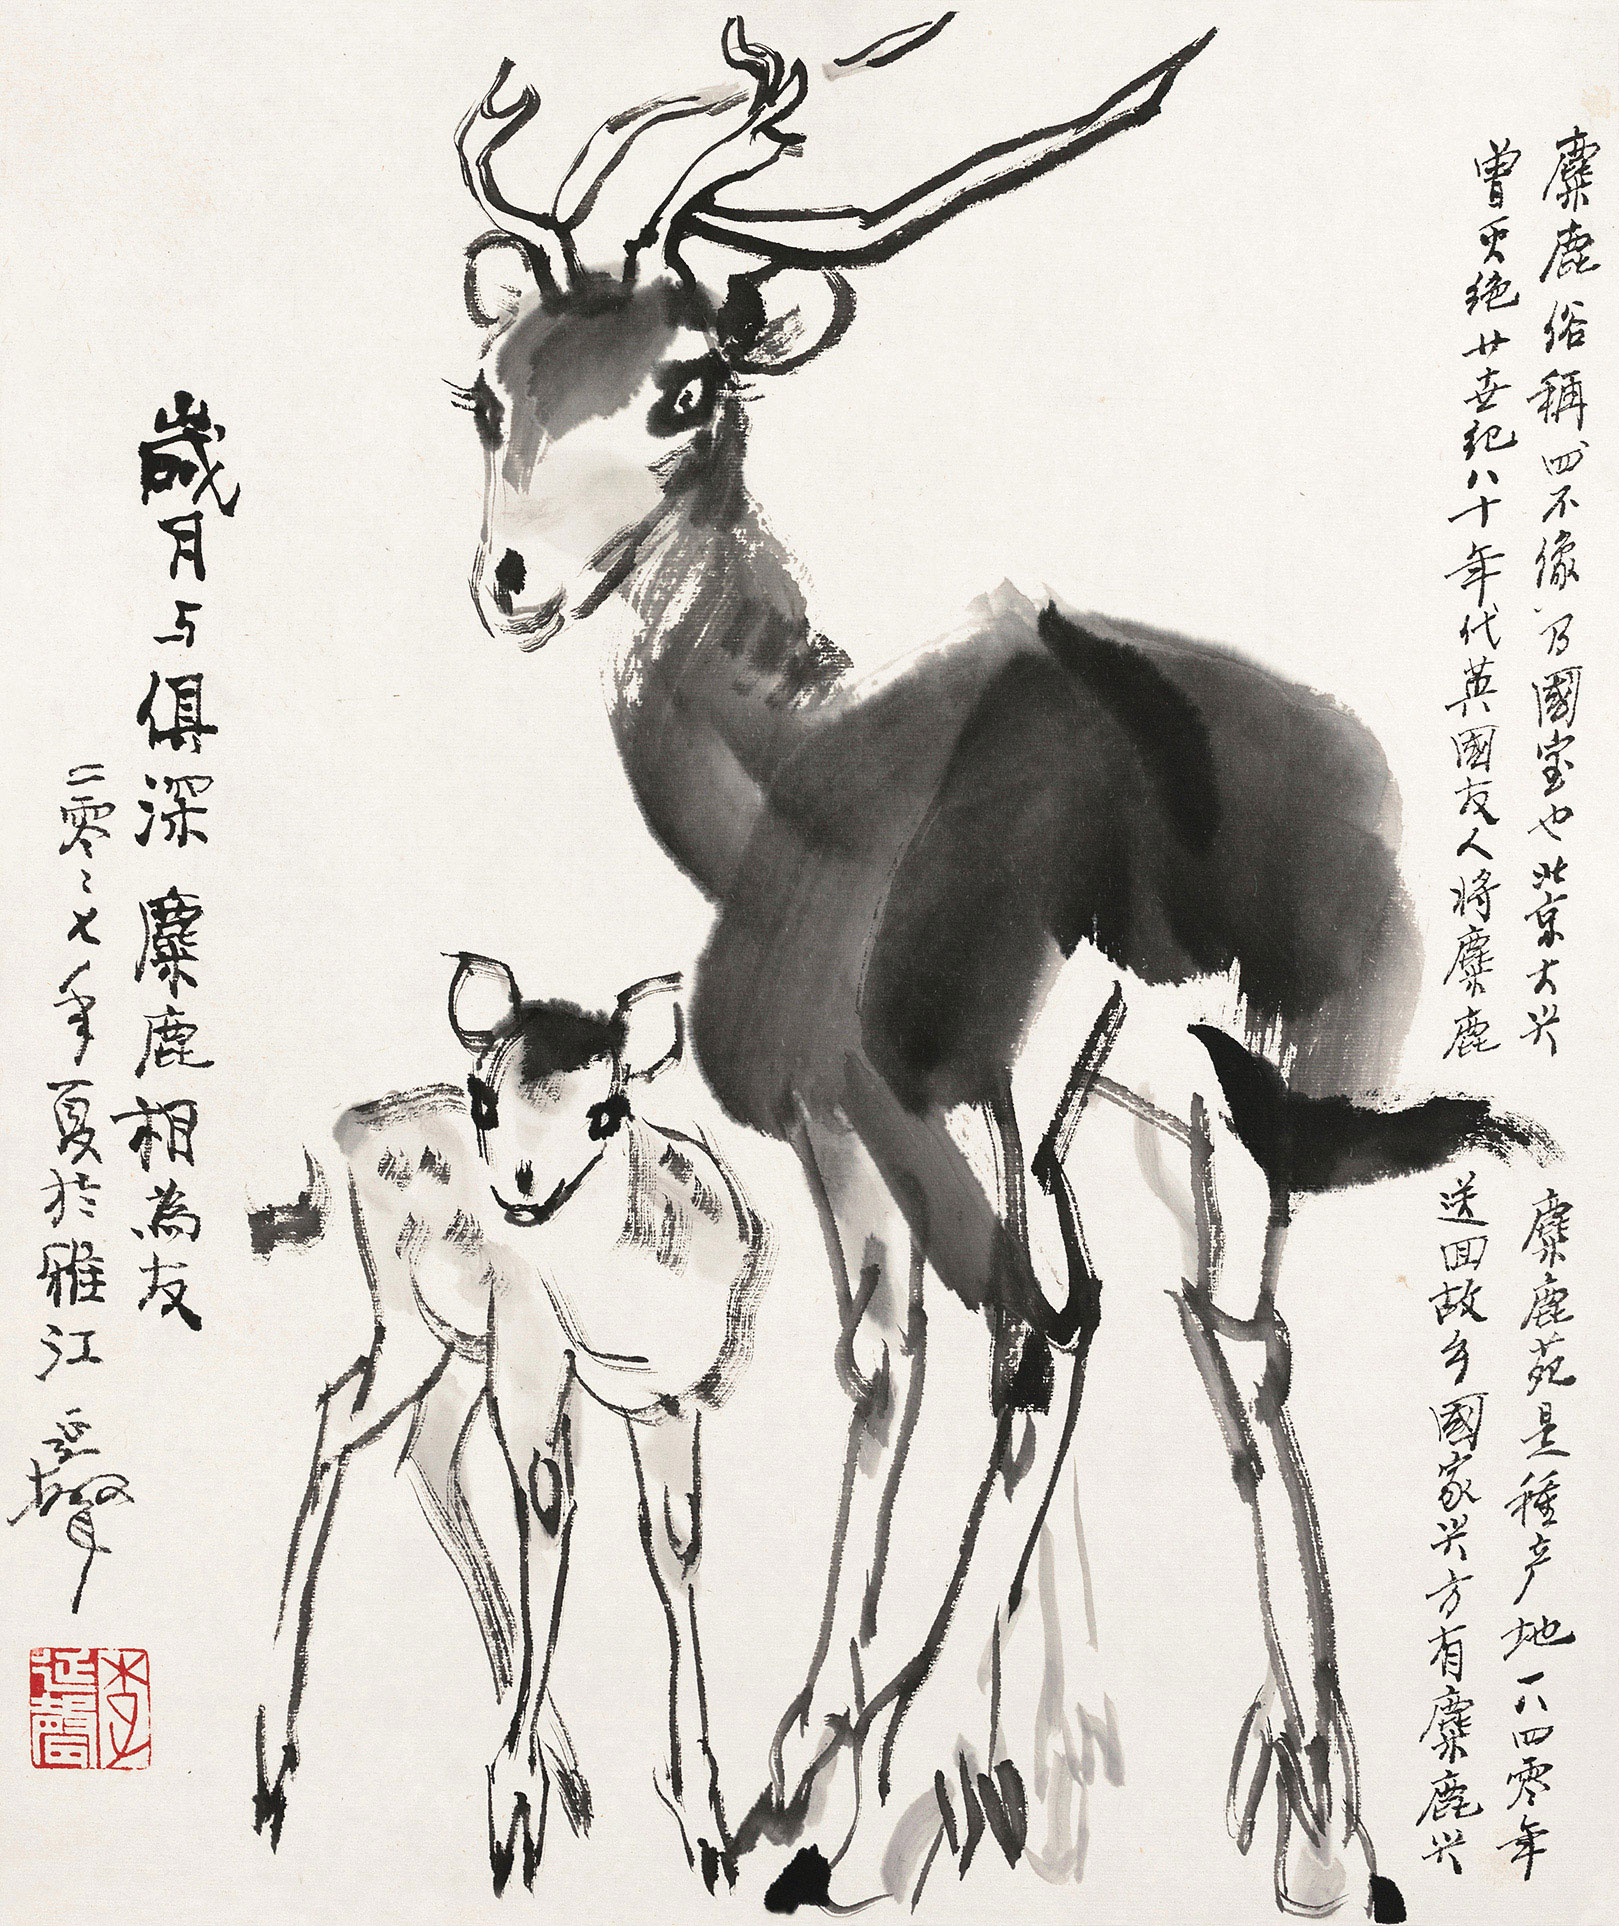 麋鹿俗稱四不像乃國宝也北京大兴麋鹿苑是種产地一八四零年
曾灭绝廿世纪八十年代英國友人将麋鹿送回故乡國家兴方有麋鹿兴
歲月与俱深 麋鹿相為友
二零〻七年夏於雅江 延聲
李延聲